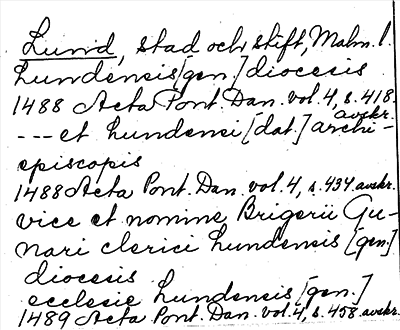 Lund, stad och stift, Malm. l.
Lundensis [gen.] diocesis
1488 Acta Pont. Dan. vol. 4, s. 418.
avskr.
--- et Lundensi [dat.] archi-
episcopis
1488 Acta Pont. Dan. vol. 4, s. 434 avskr.
vice et nomine Brigerii Gu-
nari clerici Lundensis [gen.]
diocesis
ecclesie Lundensis [gen.]
1489 Acta Pont. Dan. vol. 4, s. 458 avskr.